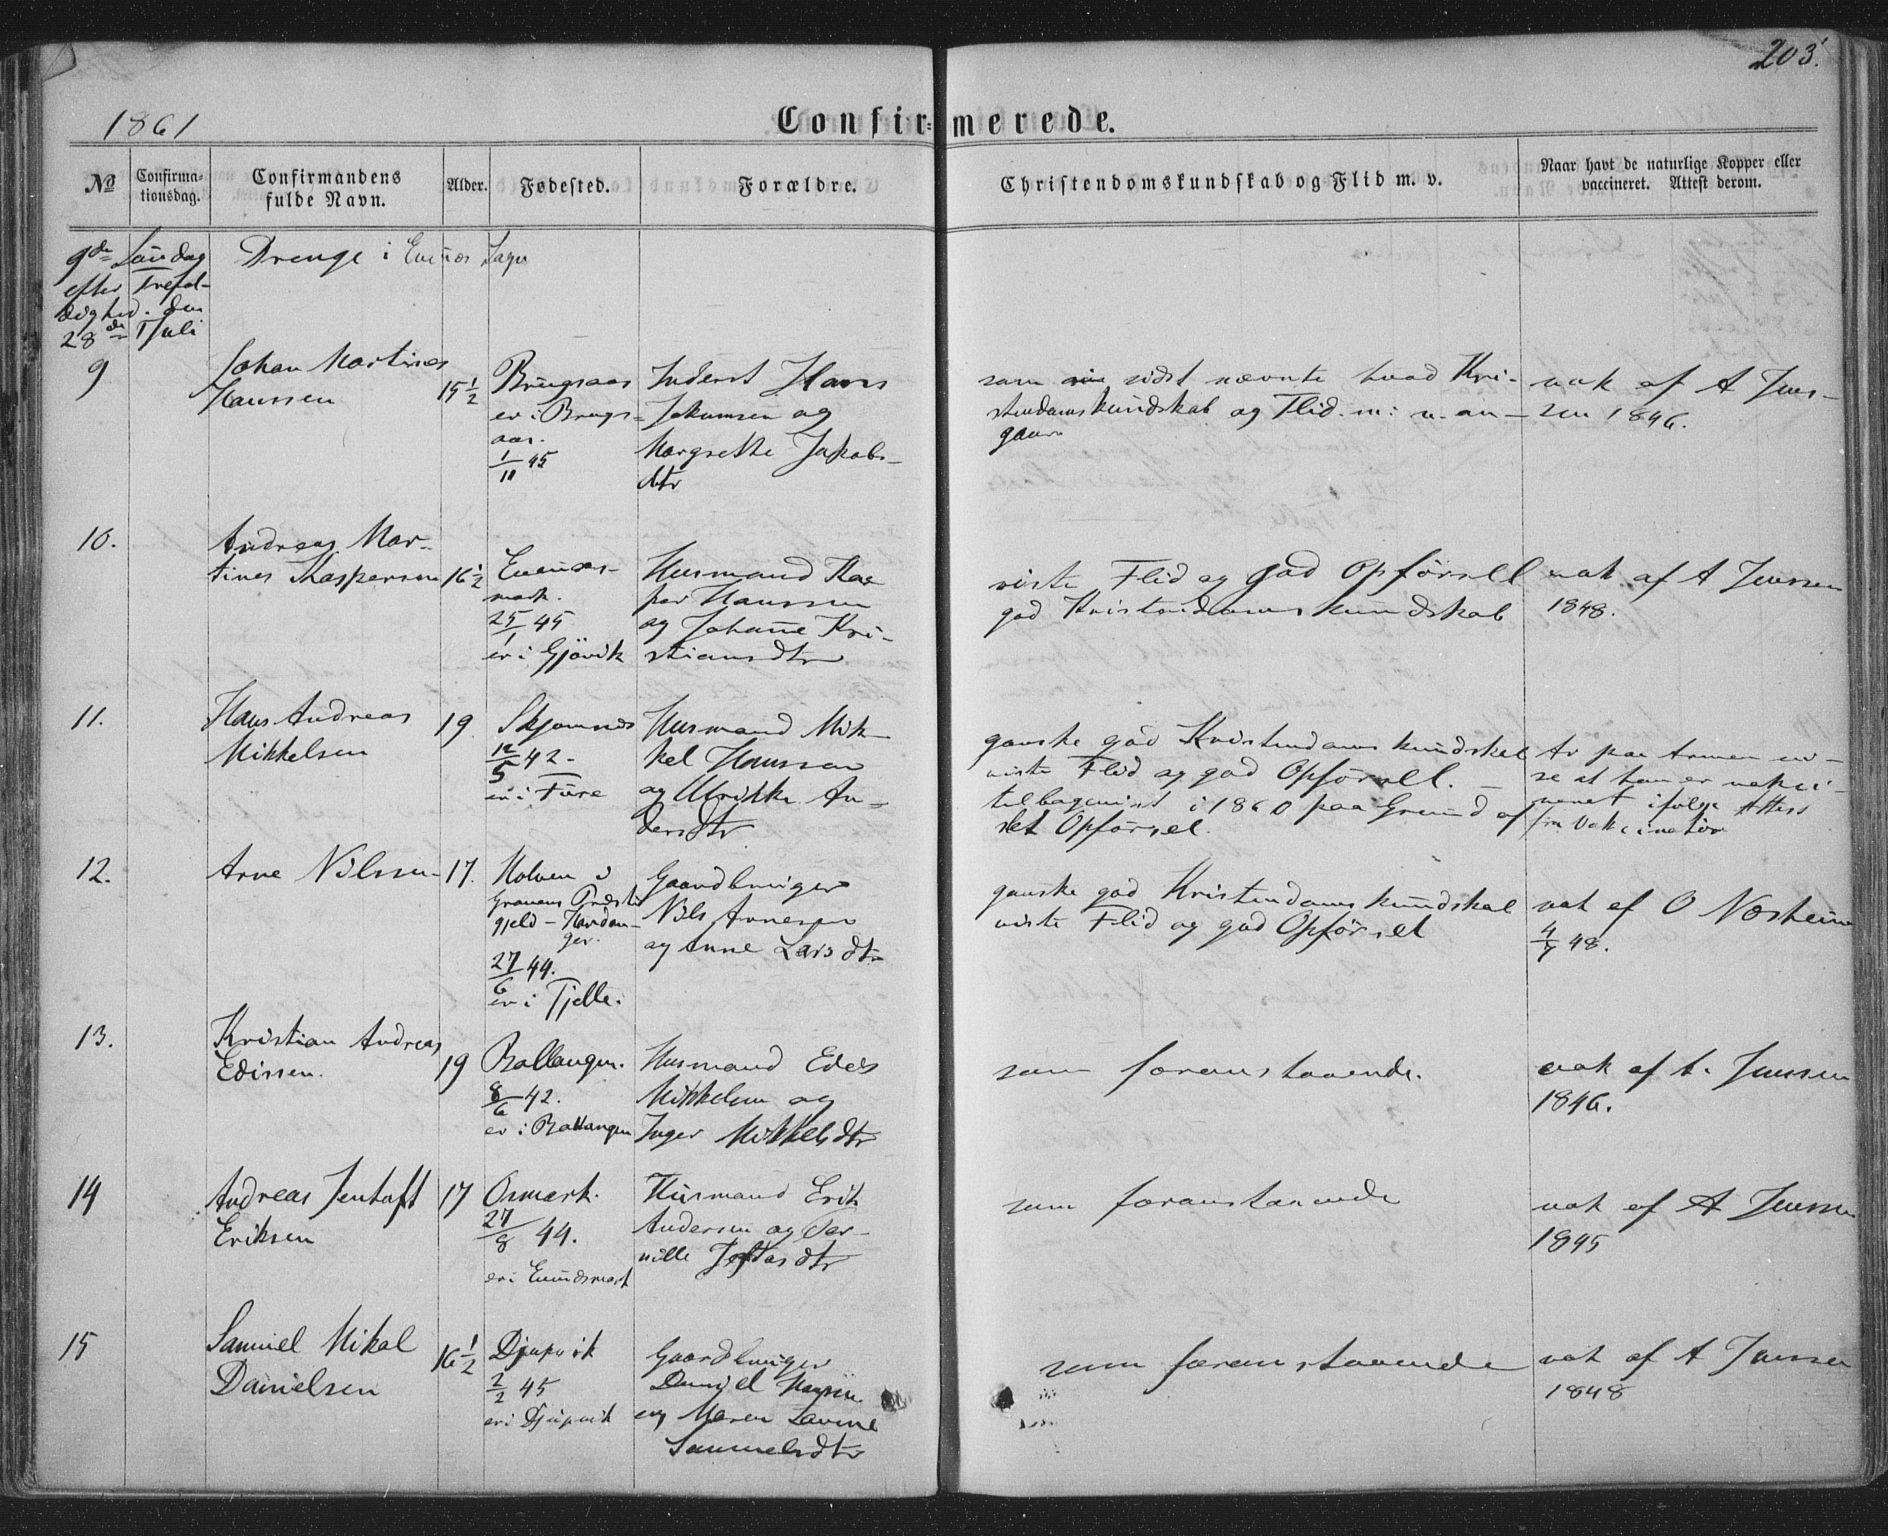 203.
1861
Confirmerede.
No
Confirmationsdag.
Confirmandens fulde Navn.
Alder.
Fødested.
Forældre.
Christendomskundskab og Flid m. v.
Naar havt de naturlige Kopper eller vaccineret. Attest derom.
9de Søndag
efter Trefol-
dighed. den
28de Juli
Drenge i Evenes Sogn
9
Johan Martines
Hanssen
15 1/2
Brugsaas
er i Brugs-
aas.
1/11 45
Inderst Hans
Jokumsen og
Margrethe Jakobs-
dtr
som sidst nævnte hvad Kri-
stendomskundskab og Flid m: v. an-
gaar
vak af A Jens-
sen 1846.
10.
Andreas Mar-
tines Kaspersen
16 1/2
Evenes-
mark.
25/1 45
er i Gjøvik
Husmand Kas
per Hanssen
og Johanne Kri-
stiansdtr
viste Flid og god Opførsell
god Kristendomskundskab
vak. af A Jenssen
1848.
11.
Hans Andreas
Mikkelsen
19
Skjomnes
12/5 42 -
er i Fure
Husmand Mik-
kel Hanssen
og Ulrikke An-
dersdtr
ganske god Kristendomskundskab
viste Flid og god Opførsell. -
tilbagevist i 1860 paa Grund af
slet Opførsel.
Ar paa Armen vi-
se at han er vakci-
neret ifølge Attest
fra Vakcinatør
12.
Arne Nilssen
17.
Holven i
Gravens Præste
gjeld - Hardan-
ger.
27/6 44.
er i Tjelle.
Gaardbruger
Nils Arnesen
og Anne Larsdtr
ganske god Kristendomskundskab
viste Flid og god Opførsel
vak af O Næsheim
4/7 48.
13.
Kristian Andreas
Edissen.
19
Ballangen.
8/6 42.
er i Ballangen
Husmand Edis
Mikkelsen og
Inger Mikkelsdtr
som foranstaaende.
vak af A. Jenssen
1846.
14
Andreas Jentoft
Eriksen
17
Osmark.
27/8 44.
er i Evenesmark
Husmand Erik
Andersen og Per-
nille Jeftasdtr
som foranstaaende
vak af A Jenssen
1845
15
Samuel Mikal
Danielsen
16 1/2
Djupvik
2/2 45
er i Djupvik
Gaardbruger
Daniel Hanssen
og Maren Lavine
Samuelsdtr
som foranstaaende
vak af A Jenssen
1848